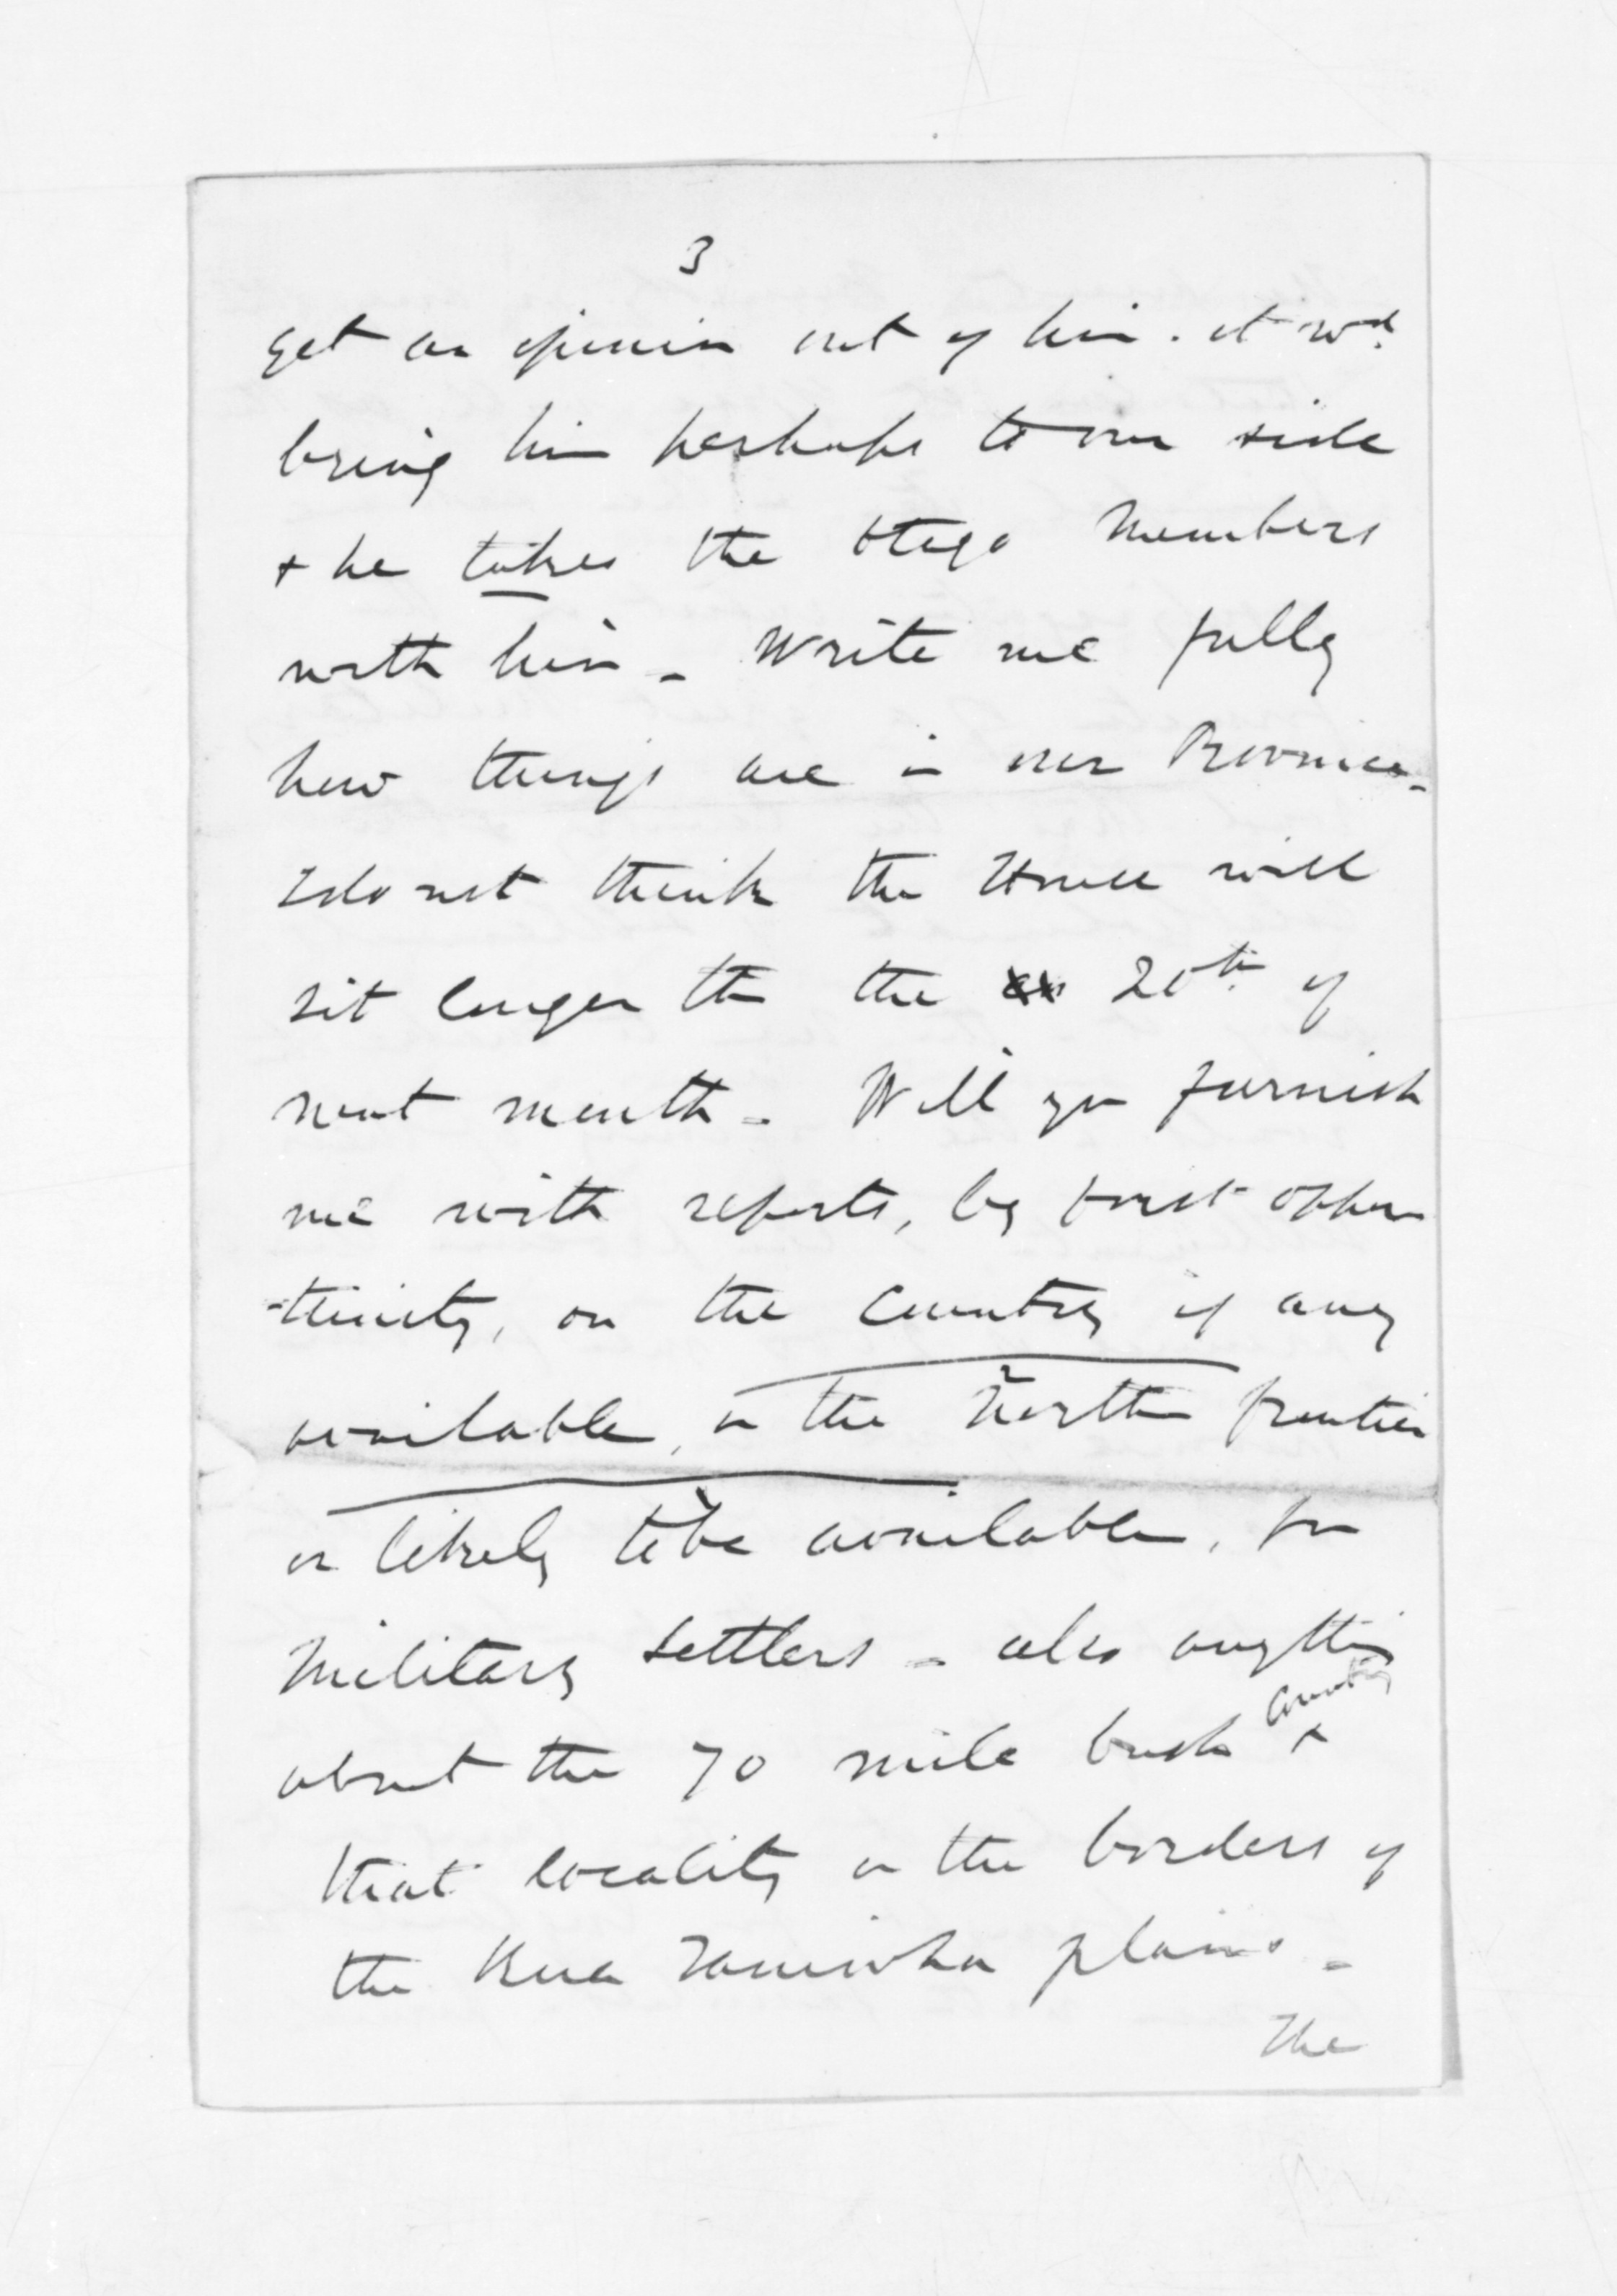 3
get an opinion out of him. it wd.
bring him perhaps to our side
+ he takes the Otago Members
with him _ Write me fully
how things are in our Province _
I do not think the House will
sit longer tn the 20th. of
next month _ Will you furnish
me with reports, by first oppor
-tunity, on the Country if any
available, on the North frontier
or likely to be available, for
Military Settlers _ also anything
about the 70 mile bush Country +
that locality on the borders of
the Rua Taniwha plains _
The